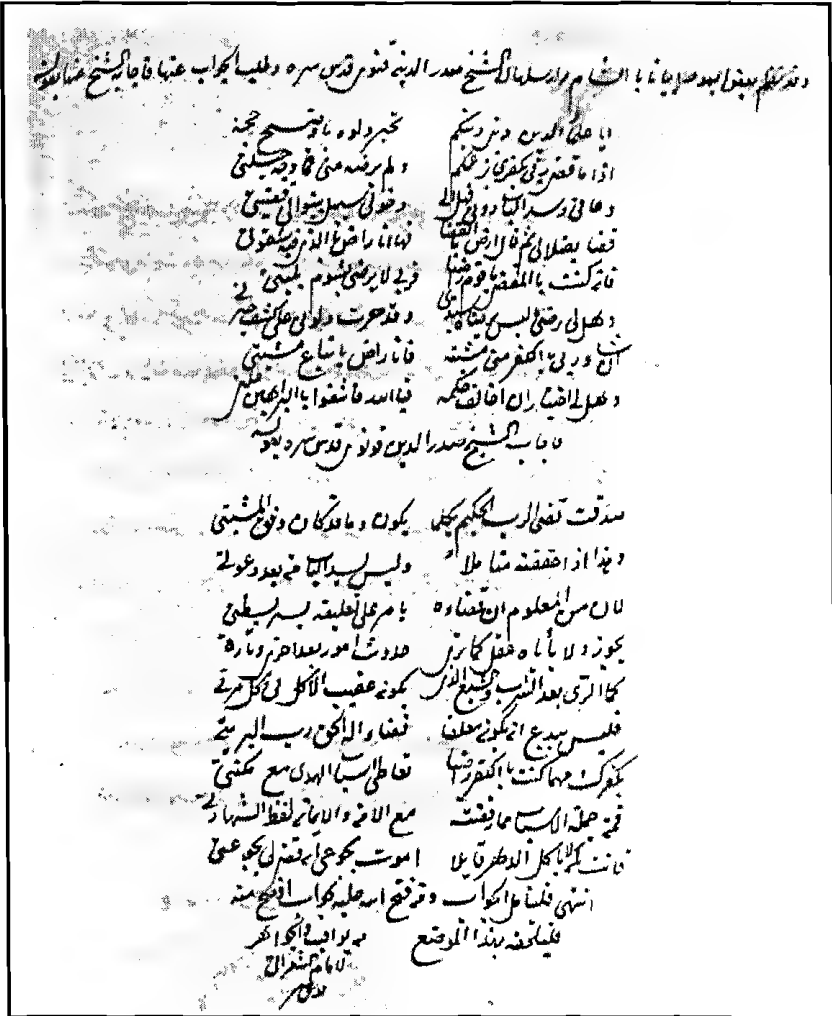 وقد نظم بعض اليهود ابياتا بالشام وارسلها الى الشيخ صدر الدين قدس سره وطلب الجواب عنها فاجابه الشيخ عنها بقوله
ايا علماء الدين ذمي دينكم تحير دلوه باوضح حجة
اذا ما قضى ربي بكفري بزعمكم ولم يرضه مني فما وجه حيلتي
دعاني وسد الباب دوني فهل الى دخولي سبيل بينوا لي قضيتي
قضا بضلالي ثم قال ارض بالقضا فها انا راض بالذي فيه شقوتي
فان كنت بالمقضي يا قوم راضيا فربي لا يرضى بشوم بليتي
وهل لي رضى ما ليس يرضاه سيدي وقد حرت دلوني على كشف حيرتي
اذا شاء ربي الكفر مني مشيئة فانا راض باتباع مشيئتي
وهل لي اختيار ان اخالف حكمه فبالله فاشفوا بالبراهين علتي
فاجاب الشيخ صدر الدين قونوي قدس سره بقوله
صدقت قضى الرب الحكيم بكلما يكون وما قد كان وفق المشيئتي
وهذا اذا حققته متأملا فليس لسد الباب من بعد دعوتي
لان من المعلوم ان قضاءه بامر على تعليقه بشريطتي
يجوز ولا يأباه عقل كما ترى حدوث امور بعد اخرى تأدت
كما الري بعد الشرب والشبع الذي يكون عقيب الاكل في كل مرتي
فليس ببدع ان يكون معلقا قضاء اله الحق رب البرية
بكفرك مهما كنت بالكفر راضيا تعاطي اسباب الهدى مع مكنتي
فمن جملة الاسباب مما رفضته مع الامن والايمان لفظ الشهادتي
فانت كمن لا ياكل الدهر قائلا اموت بجوعي اذ قضى لي بجوعتي
انتهى فليتأمل الجواب ومن فتح الله عليه بجواب اوضح منه
فليلحقه بهذا الموضع من يواقيت والجواهر
للامام الشعراني